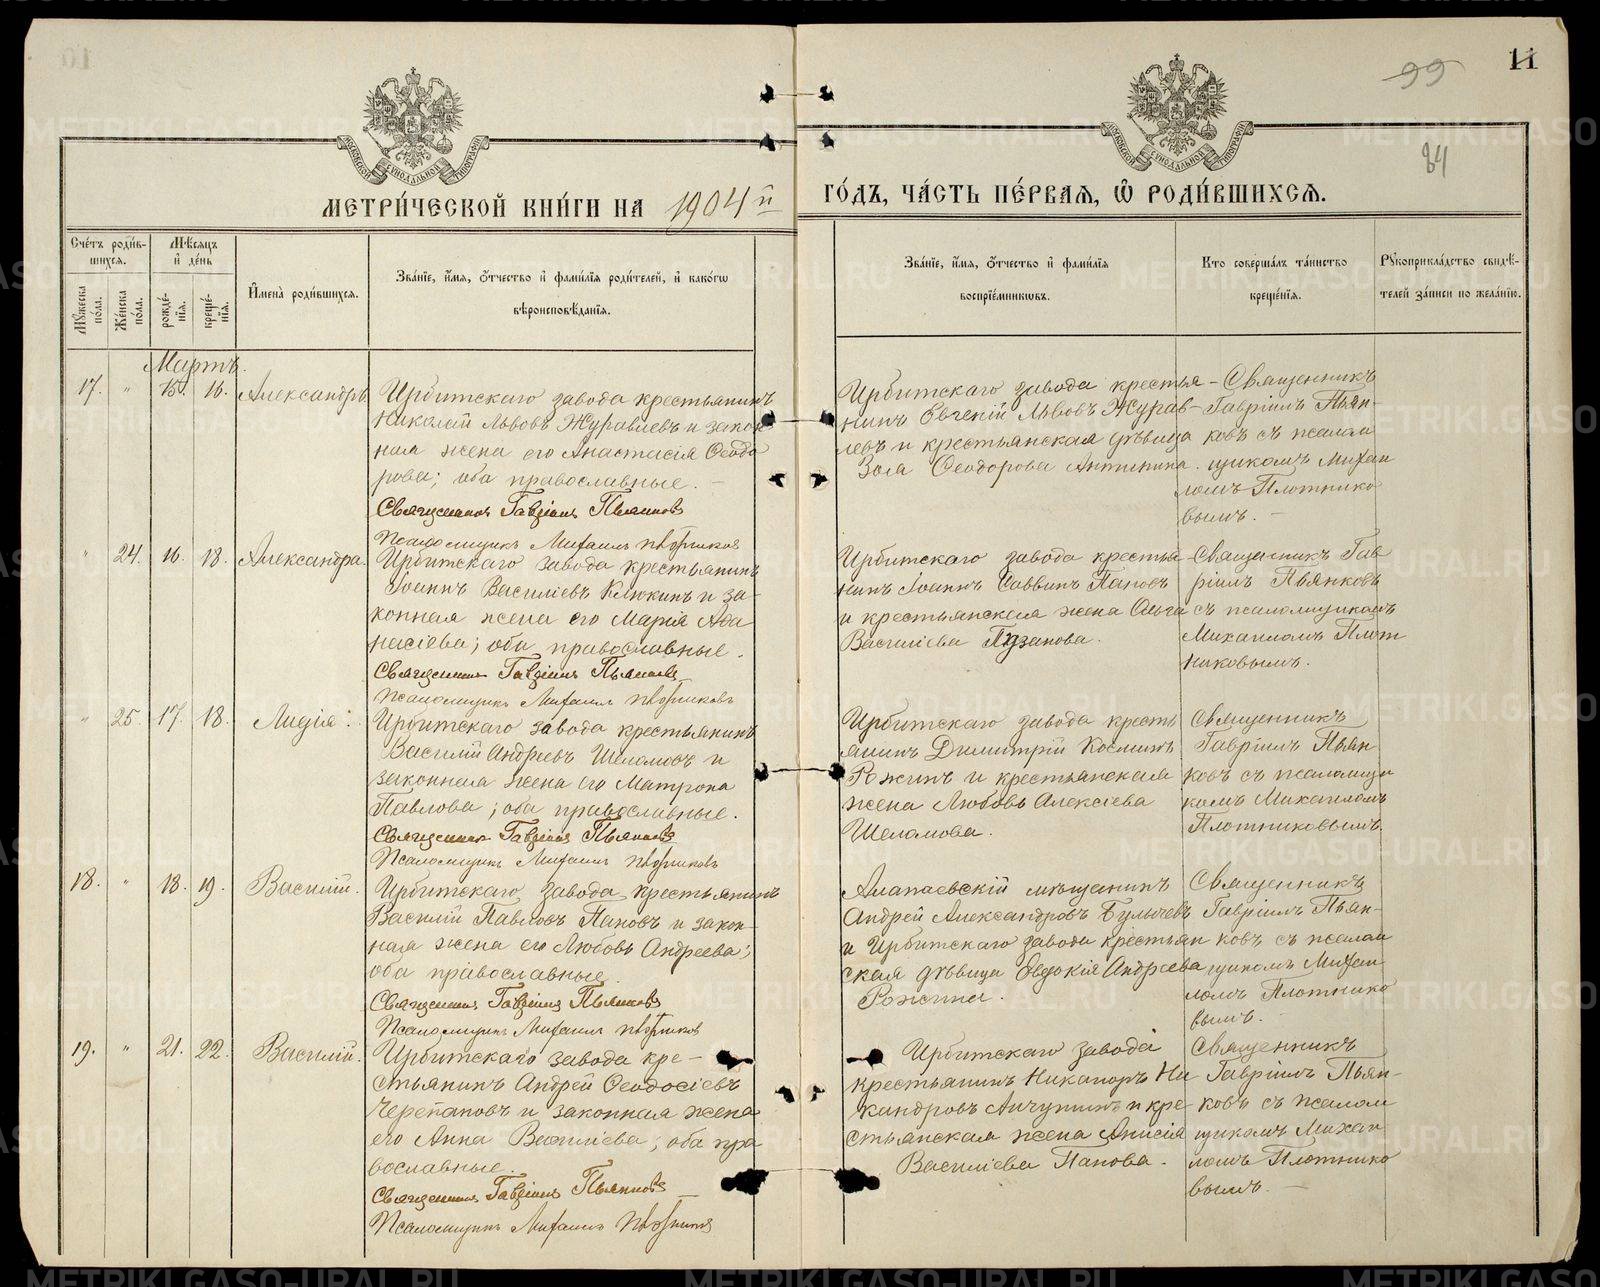 11
99
84
МЕТРИ́ЧЕСКОЙ КНИ́ГИ НА 1904 й ГО́ДЪ, ЧА́СТЬ ПЕ́РВАЯ, Ѽ РОДИ́ВШИХСѦ.
Сче́тъ роди́в-
шихся.
Мꙋ́жеска по́ла.
Же́нска по́ла.
Мѣ́сѧцъ
и҆ де́нь
рожде́-
нїѧ.
креще́-
нїѧ.
И҆мена̀ роди́вшихсѧ.
Зва́нїе, и҆́мѧ, ѻ҆́тчество и҆ фами́лїѧ роди́телей, и҆ како́гѡ
вѣроисповѣ́данїѧ.
Зва́нїе, и҆́мѧ, ѻ҆́тчество и҆ фами́лїѧ
воспрїе́мникѡвъ.
Кто̀ соверша́лъ та́инство
креще́нїѧ.
Рꙋкоприкла́дство свидѣ́-
телей за́писи по жела́нїю.
Мартъ.
17. " 15. 16. Александръ.
Ирбитскаго завода крестьянинъ
Николай Львовъ Журавлевъ и закон
ная жена его Анастасія Ѳеодо
рова; оба православные. –
Священникъ Гавріилъ Пьянковъ
Псаломщикъ Михаилъ Плотниковъ
Ирбитскаго завода крестья –
нинъ Евгеній Львовъ Журав–
левъ и крестьянская дѣвица
Зоя Ѳеодорова
Священникъ
Гавріилъ Пьян-
ковъ съ псалом
щикомъ Михаи
ломъ Плотнико
вымъ. –
" 24. 16. 18. Александра.
Ирбитскаго завода крестьянинъ
Іоаннъ Василіевъ Клюкинъ и за-
конная жена его Марія Ада
насіева; оба православные.
Священникъ Гавріилъ Пьянковъ
Псаломщикъ Михаилъ Плотниковъ
Ирбитскаго завода крестья
нинъ Іоаннъ Саввинъ Пановъ
и крестьянская жена Ольга
Василіева
Священникъ Гав
ріилъ Пьянковъ
съ псаломщикомъ
Михаиломъ Плот
никовымъ.
" 25. 17. 18. Лидія.
Ирбитскаго завода крестьянинъ
Василій Андреевъ Шеломовъ и
законная жена его Матрона
Павлова; оба православные.
Священникъ Гавріилъ Пьянковъ
Псаломщикъ Михаилъ Плотниковъ
Ирбитскаго завода кресть
янинъ Димитрій Косминъ
Рожинъ и крестьянская
жена Любовь Алексіева
Шеломова.
Священникъ
Гавріилъ Пьян
ковъ съ псаломщи
комъ Михаиломъ
Плотниковымъ.
18. " 18. 19. Василій.
Ирбитскаго завода крестьянинъ
Василій Павловъ Пановъ и закон-
ная жена его Любовь Андреева;
оба православные.
Священникъ Гавріилъ Пьянковъ
Псаломщикъ Михаилъ Плотниковъ
Алапаевскій мѣщанинъ
Андрей Александровъ Булычевъ
и Ирбитскаго завода крестьян
ская дѣвица Евдокія Андреева
Рожина.
Священникъ
Гавріилъ Пьян-
ковъ съ псалом
щикомъ Михаи
ломъ Плотнико
вымъ.
19. " 21. 22. Василій.
Ирбитскаго завода кре–
стьянинъ Андрей Ѳеодосіевъ
Черепановъ и законная жена
его Анна Василіева; оба пра
вославные.
Священникъ Гавріилъ Пьянковъ
Псаломщикъ Михаилъ Плотниковъ
Ирбитскаго завода
крестьянинъ Никаноръ Ни
кандровъ и кре
стьянская жена Анисія
Василіева Панова.
Священникъ
Гавріилъ Пьян-
ковъ съ псалом
щикомъ Михаи
ломъ Плотнико
вымъ. –
METRIKI.GASO-URAL.RU